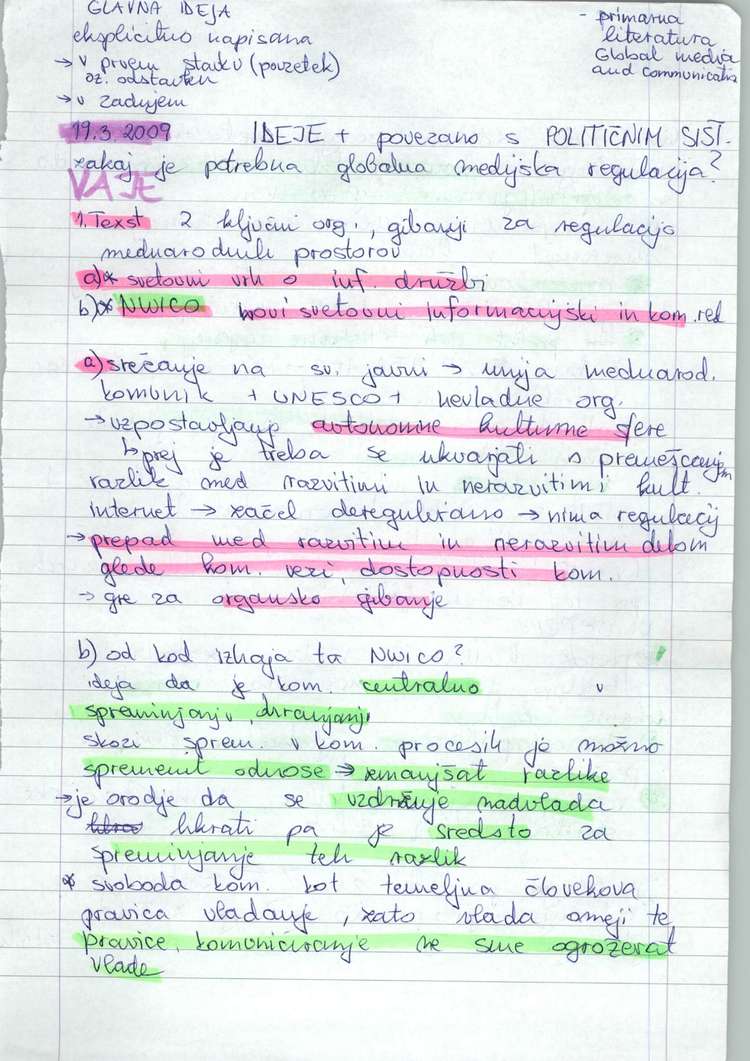 GLAVNA IDEJA
eksplicitno napisana
→ v prvem stavku (povzetek)
oz. odstavku
→ v zadnjem
- primarna
literatura
Global media
and communication
19.3.2009 IDEJE + povezano s POLITIČNIM SIST.
zakaj je potrebna globalna medijska regulacija?
VAJE
1. Text 2 ključni org., gibanji za regulacijo
mednarodnih prostorov
a)* svetovni vrh o inf. družbi
b)* NWICO novi svetovni informacijski in kom. red
a) srečanje na sv. javni → unija mednarod.
komunik + UNESCO + nevladne org.
→ vzpostavljanje avtonomne kulturne sfere
↳ prej je treba se ukvarjati s premeščanjem
razlik med razvitimi in nerazvitimi kult.
internet → začel deregulirano → nima regulacij
→ prepad med razvitim in nerazvitim delom
glede kom. vezi, dostopnosti kom.
→ gre za organsko gibanje
b) od kod izhaja ta NWICO?
ideja da je kom. centralno v
spreminjanju, ohranjanju
skozi sprem. v kom. procesih je možno
spremenit odnose → zmanjšat razlike
→ je orodje da se vzdržuje nadvlada
hkrati pa je sredsto za
spreminjanje teh razlik
* svoboda kom. kot temeljna človekova
pravica vladanje, zato vlada omeji te
pravice, komuniciranje ne sme ogrožat
vlade